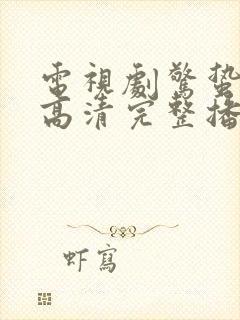 電視劇驚蟄
高清完整播
虾寫